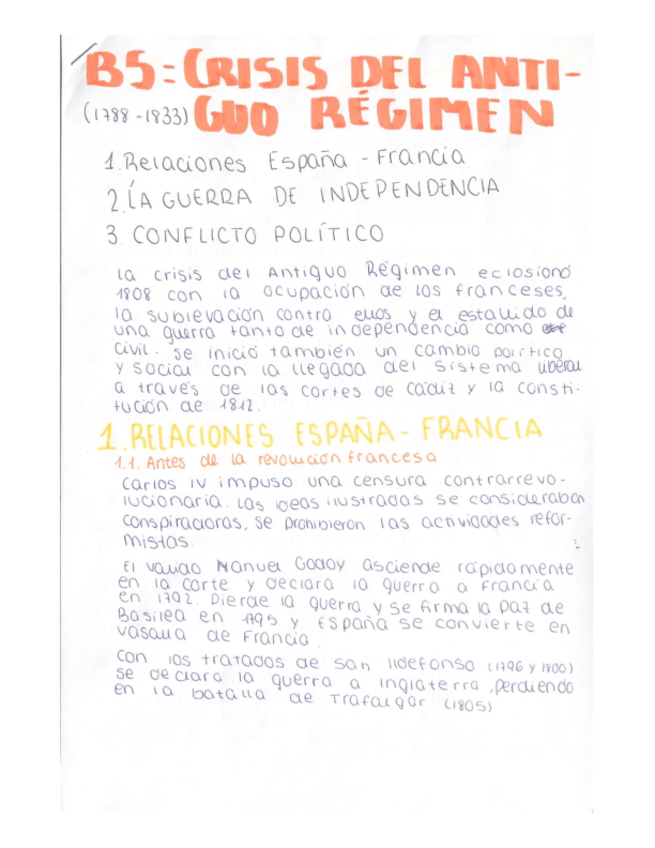 B5: CRISIS DEL ANTI-
(1788-1833) GUO RÉGIMEN
1. Relaciones España - Francia
2. LA GUERRA DE INDEPENDENCIA
3. CONFLICTO POLÍTICO
La crisis del Antiguo Régimen eclosionó
1808 con la ocupación de los franceses,
la sublevación contra ellos y el estallido de
una guerra tanto de independencia como
civil. Se inició también un cambio político
y social con la llegada del sistema liberal
a través de las cortes de Cádiz y la consti-
tución de 1812.
1. RELACIONES ESPAÑA - FRANCIA
1.1. Antes de la revolución francesa
Carlos IV impuso una censura contrarrevo-
lucionaria. Las ideas ilustradas se consideraban
conspiradoras, se prohibieron las actividades refor-
mistas.
El valido Manuel Godoy asciende rápidamente
en la corte y declara la guerra a Francia
en 1792. Pierde la guerra y se firma la Paz de
Basilea en 1795 y España se convierte en
vasalla de Francia.
Con los tratados de San Ildefonso (1796 y 1800)
se declara la guerra a Inglaterra, perdiendo
en la batalla de Trafalgar (1805)